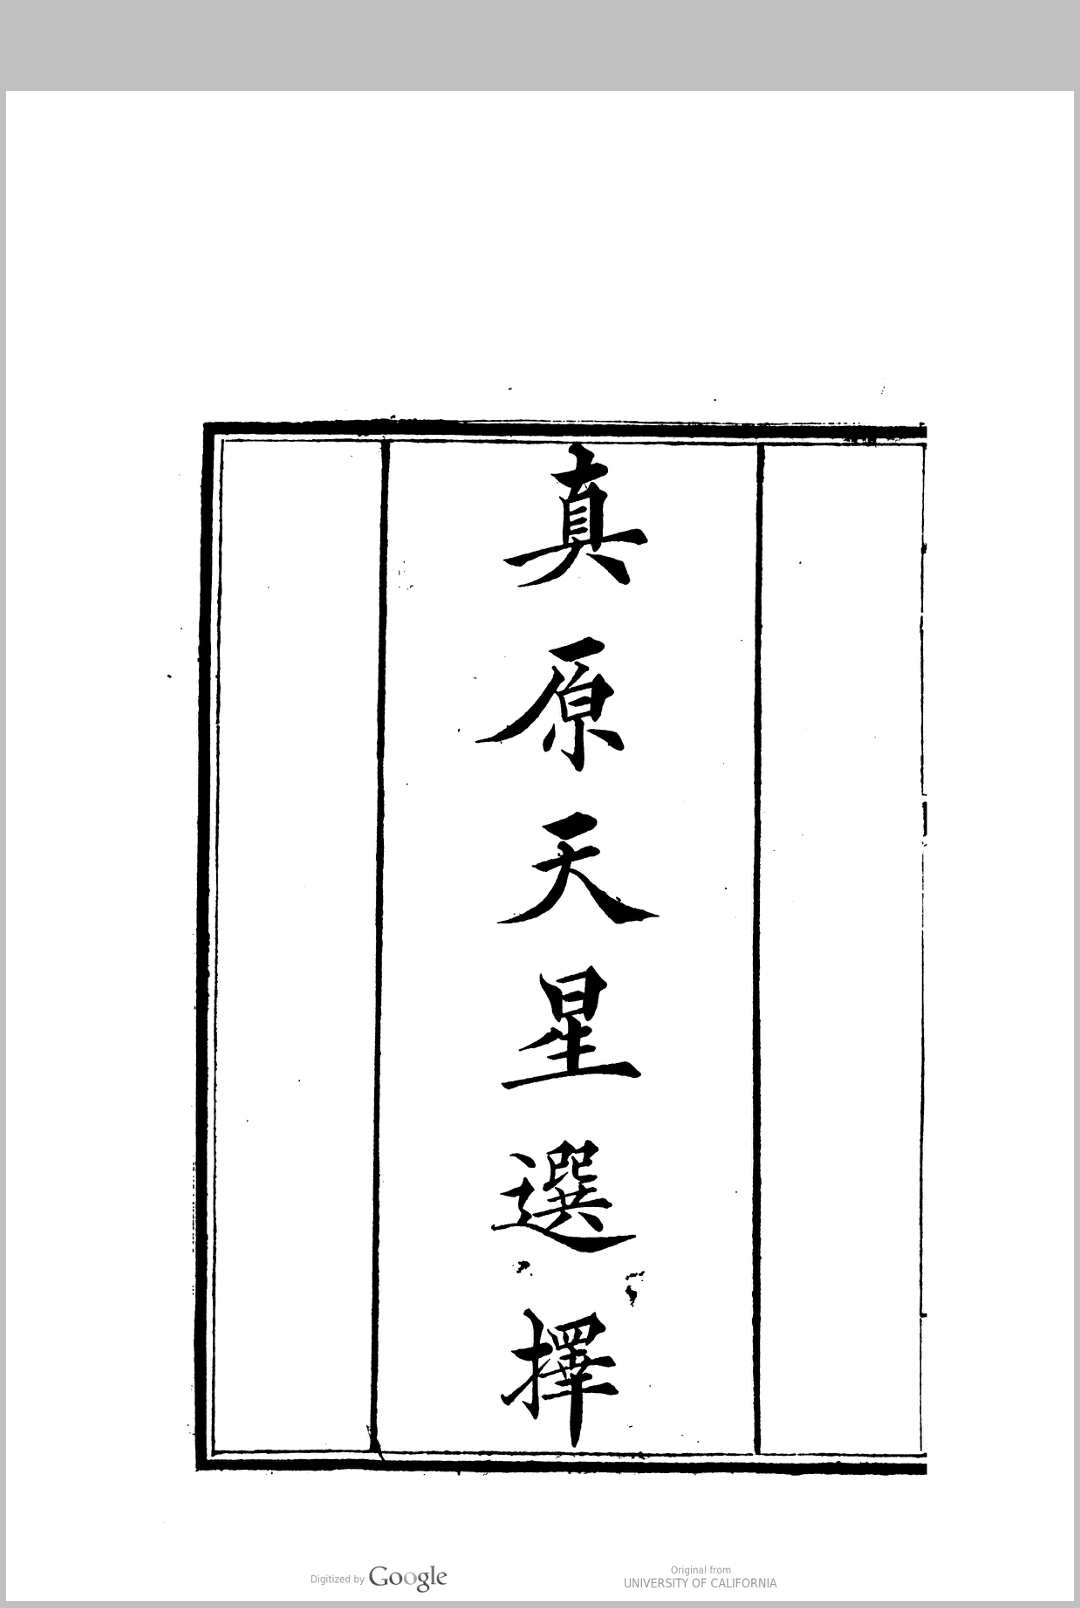 真原天星選擇
Digitized by Google
Original from
UNIVERSITY OF CALIFORNIA